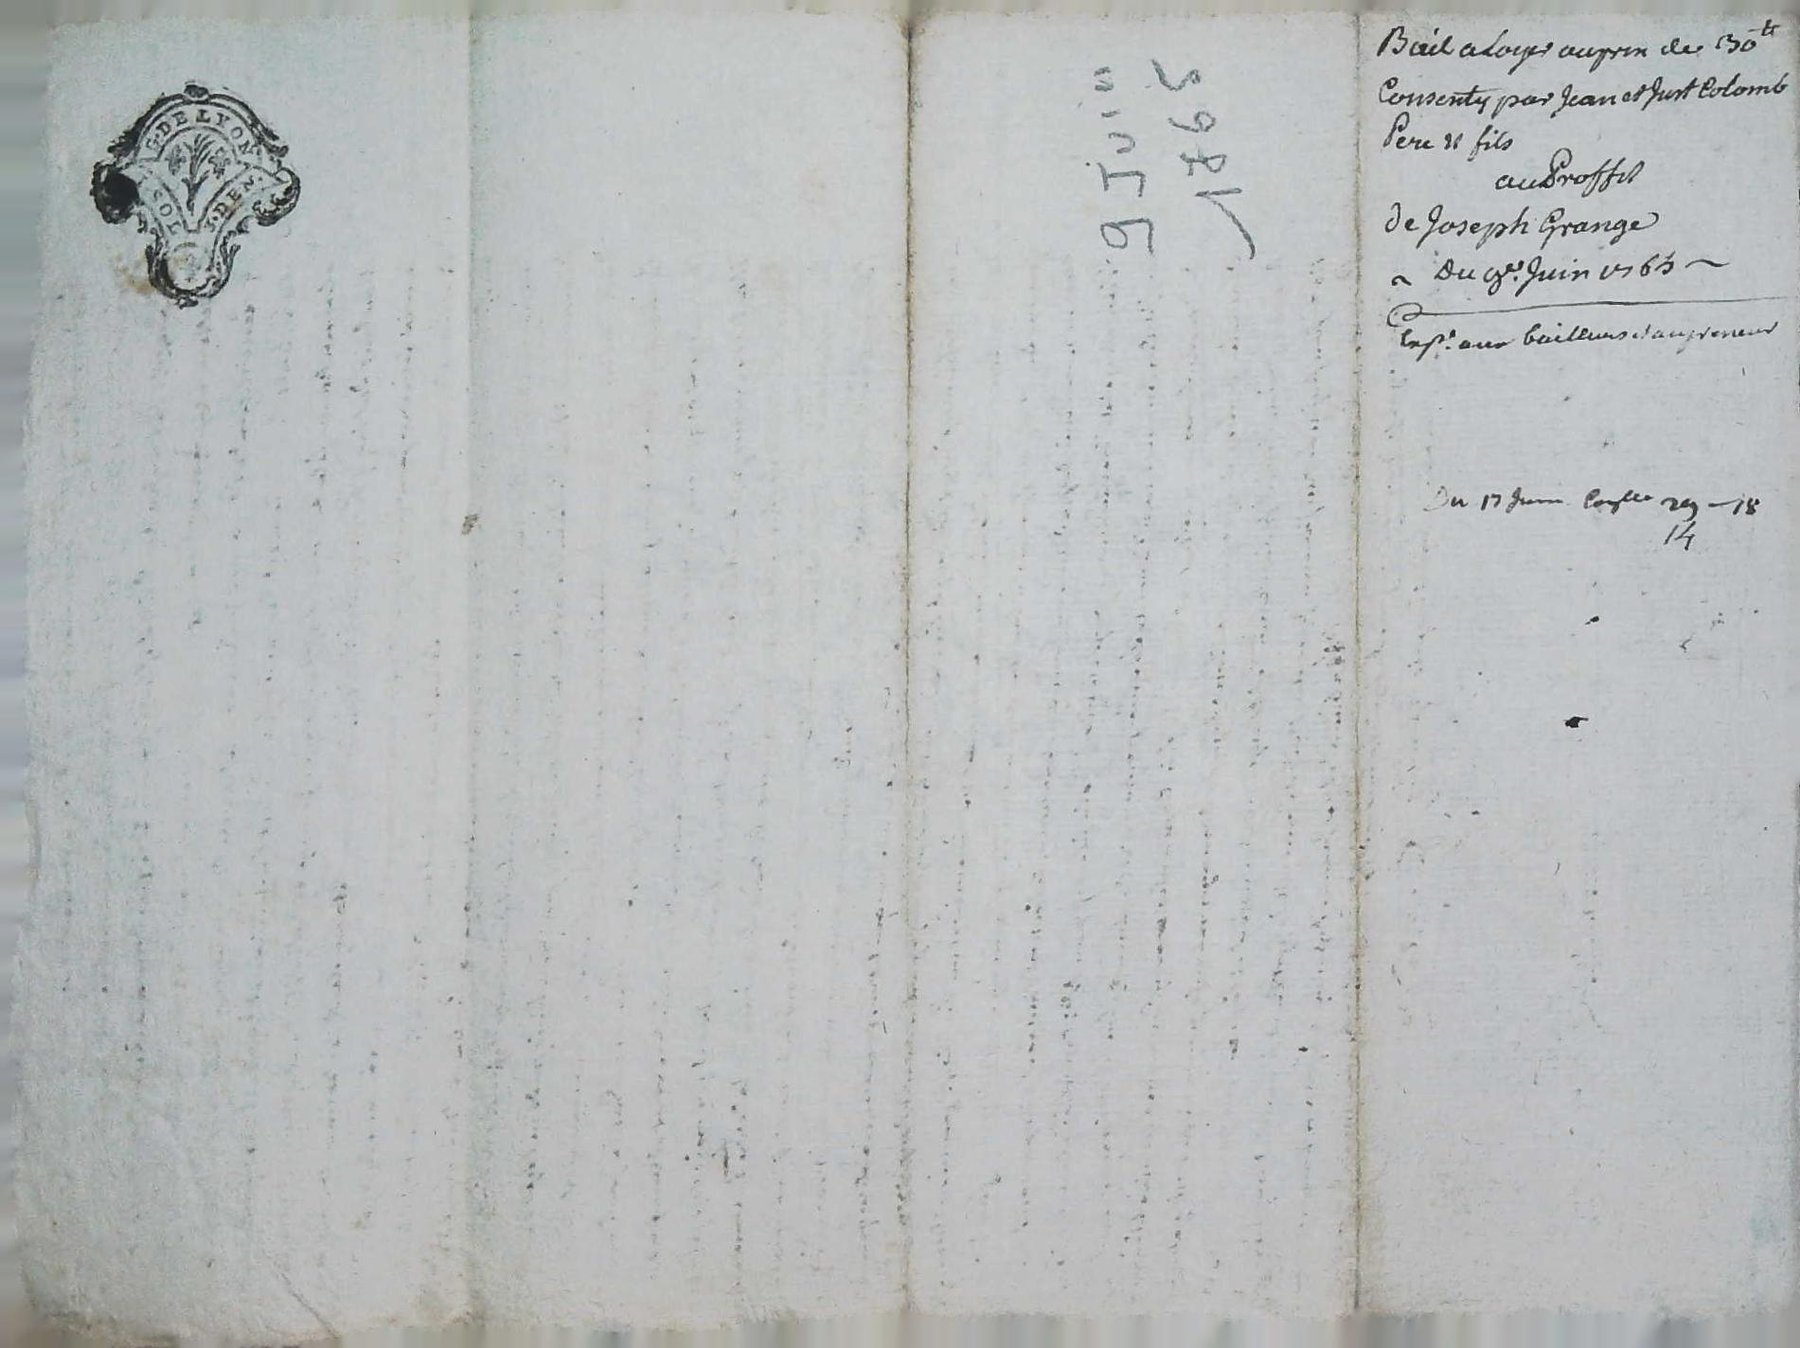 G. DE LYON.
SOL S. DEN.
9 Juin
1765
Bail a Loyer au prix de 130tt
Consenty par Jean et Just Colomb
Pere et fils
au Proffit
de Joseph Grange
~ Du 9e. Juin 1765 ~
Exp. aux bailleurs et au preneur
Du 17 Juin 29 - 18
14